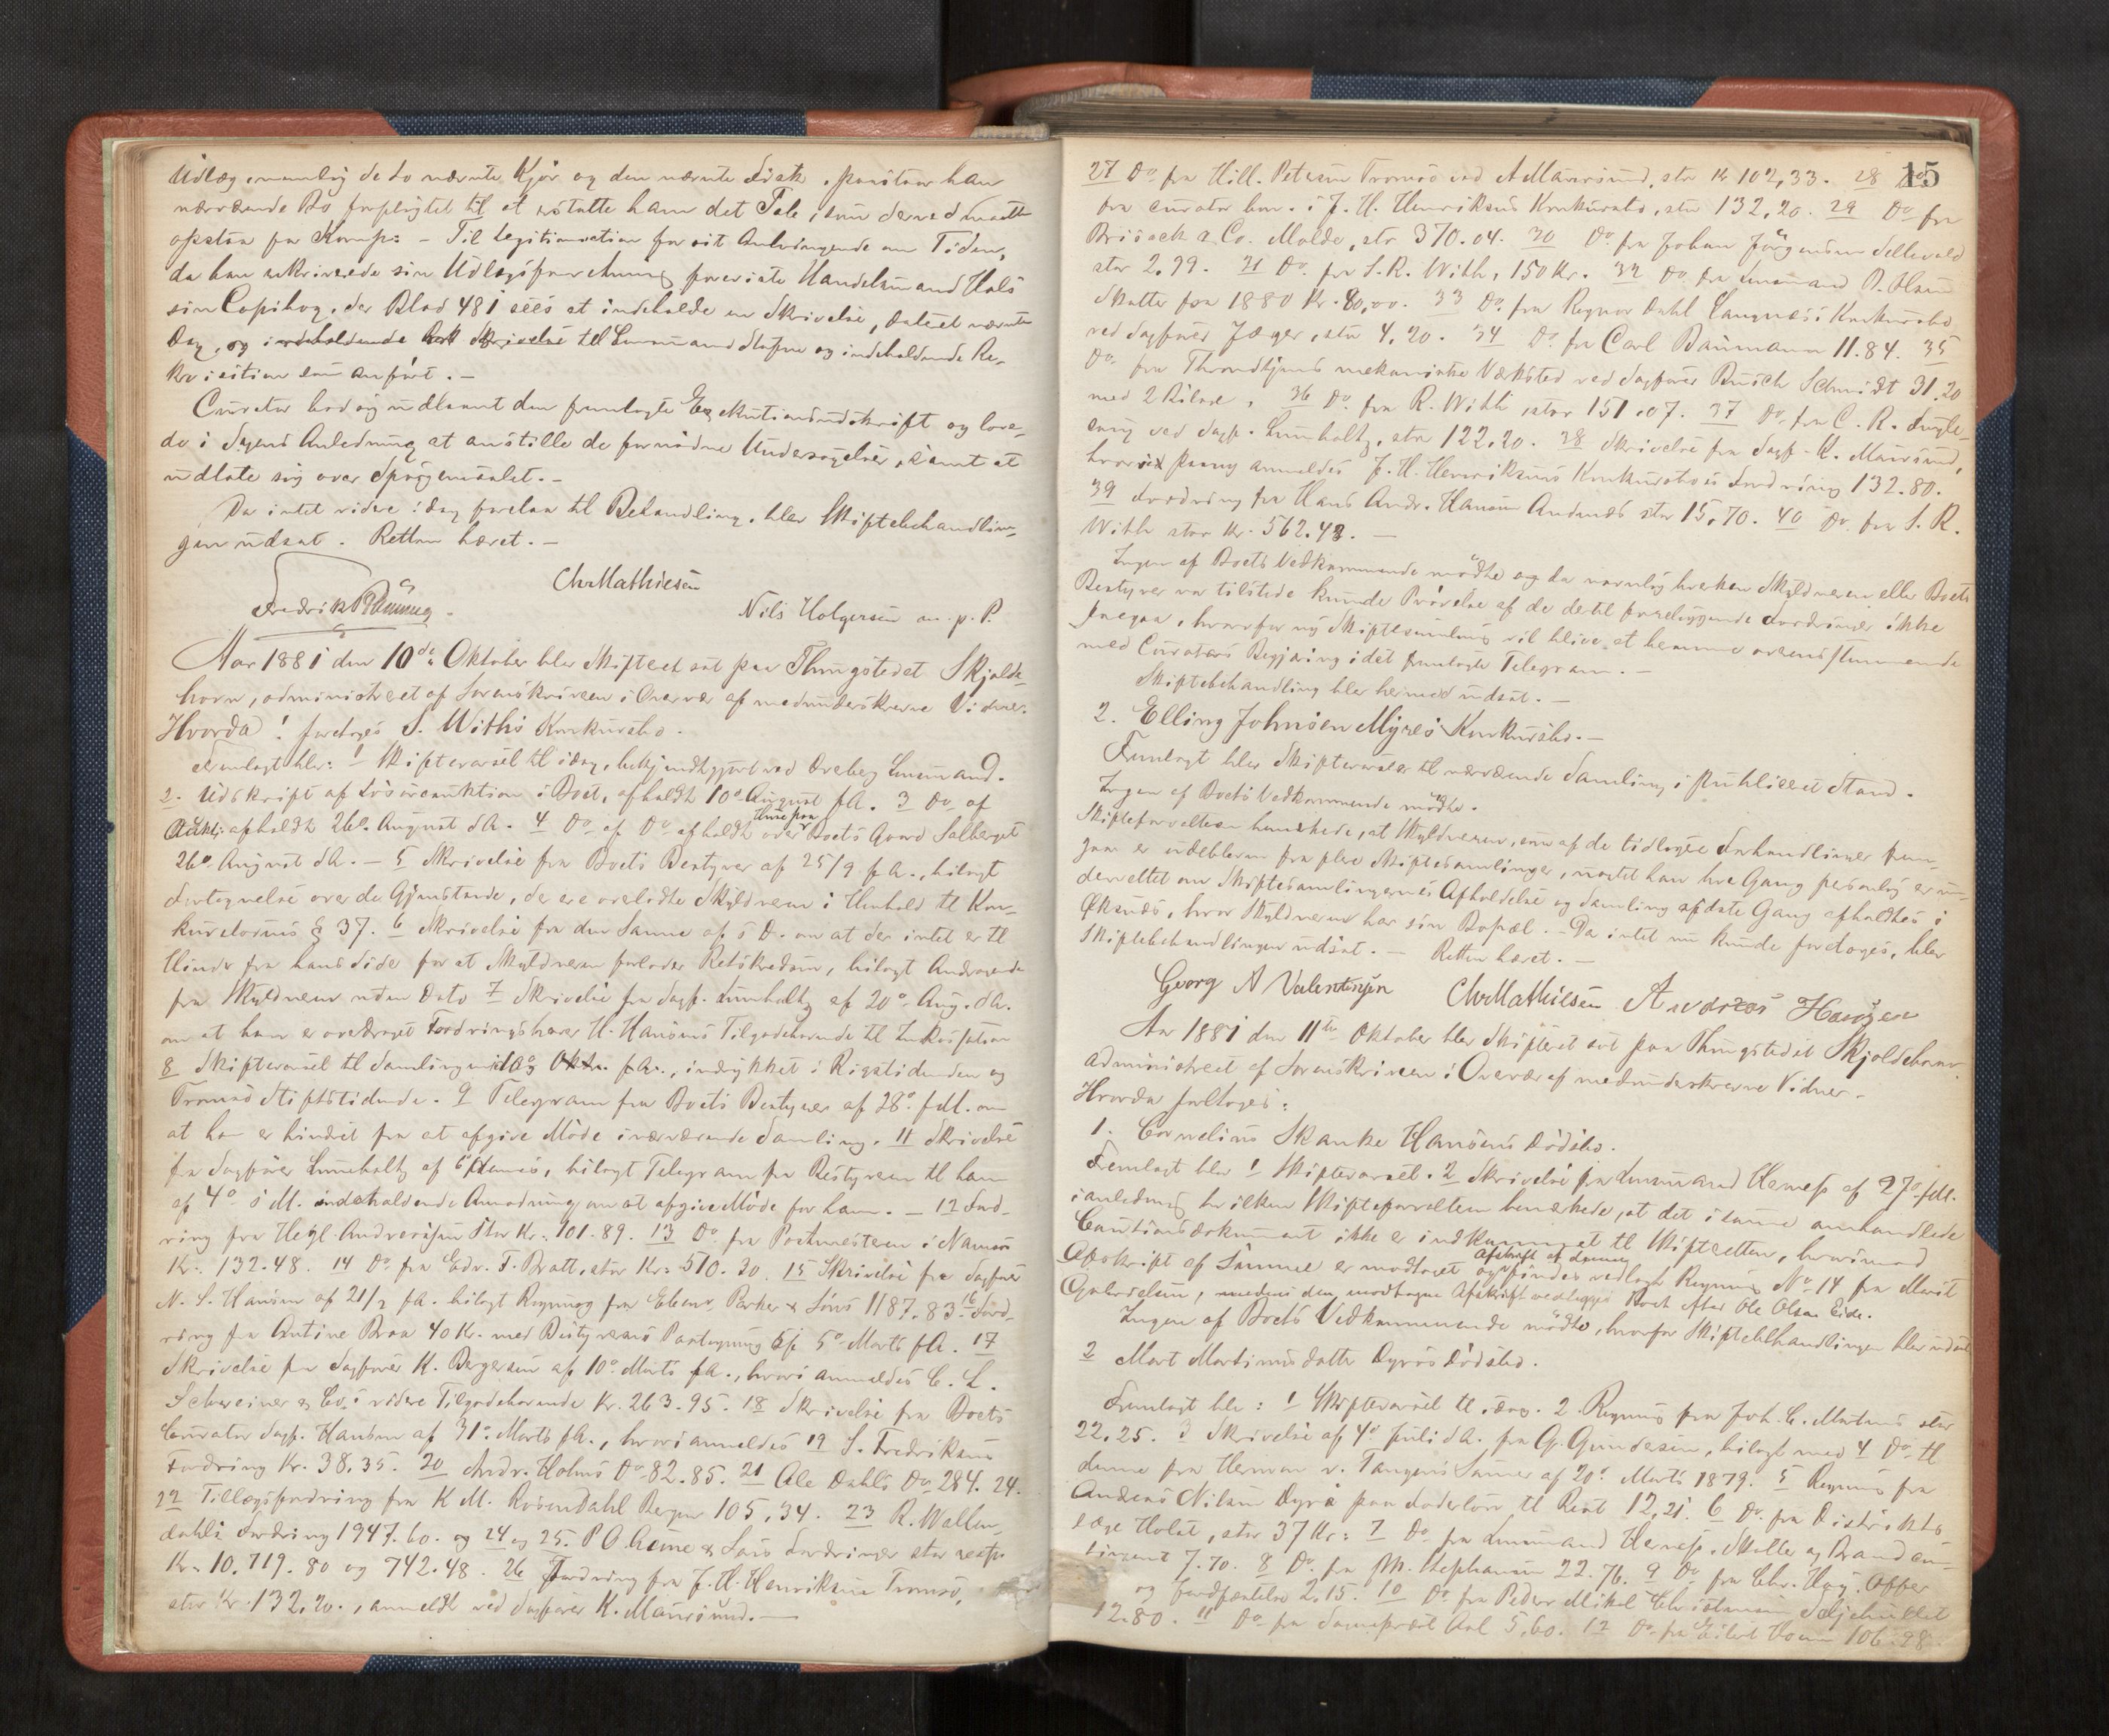 Udlæg, nemlig de to nævnte Kjør og den nævnte Fisk, paastaar han
nærværende Bo forpligtet til at erstatte ham det Tab, som derved maatte
opstaa for Komp: - Til Legitimation for sit Anbringende om Tiden,
da han rekvirerede sin Udlægsforretning foreviste Handelsmand Hals
sin Copibog, der Blad 481 sees at indeholde en Skrivelse, dateret nævnte
Dag, og indeholdende Skrivelse til Lensmand og indeholdende Re-
kvisition som anført. -
Curator bad sig udlaant den fremlagte Exekutionsudskrift og love-
de i Sagens Anledning at anstille de fornødne Undersøgelser, samt at
udlate sig over Spørgsmaalet. -
Da intet videre idag forelaa til Behandling, blev Skiftebehandlin-
gen udsat. Retten hævet. -
Chr Mathiesen
Fredrik
Nils Holgersen m. p. P.
Aar 1881 den 10de Oktober blev Skifteret sat paa Thingstedet Skjolde-
havn, administreret af Sorenskriveren i Overvær af medunderskrevne Vidner.
Hvorda 1 foretoges S. Withs Konkursbo.
Fremlagt blev: 1 Skiftevarsel til idag, bekjendtgjort ved Lensmand.
2. Udskrift af Løsøreauktion i Boet, afholdt 10de August f A. 3 Do af
afholdt 26de August d A. 4 Do af Do afholdt over Boets Gaard Solberget
26de August d A. - 5 Skrivelse fra Boets Bestyrer af 25/9 f A., bilagt
Fortegnelse over de Gjenstande, der ere overladte Skyldneren i Henhold til Kon-
kurslovens § 37. 6 Skrivelse fra den Samme af s D. om at der intet er til
Hinder fra hans Side for at Skyldneren forlader Retskredsen, bilagt Andragende
fra Skyldneren uden Dato 7 Skrivelse fra Sagf. Lumholtz af 20de Aug. d A.
om at han er overdraget Fordringshaver H. Hansens Tilgodehavende til Inkassation
8 Skiftevarsel til Samlingen idag f A., indrykket i Rigstidenden og
Tromsø Stiftstidende. 9 Telegram fra Boets Bestyrer af 28de f M. om
at han er hindret fra at afgive Møde i nærværende Samling. 11 Skrivelse
fra Sagfører Lumholtz af 6te dennes, bilagt Telegram fra Bestyreren til ham
af 4de s M. indeholdende Anmodning om at afgive Møde for ham. - 12 Ford-
ring fra Andreassen stor Kr. 101.89. 13 Do fra Postmesteren i Namsos
Kr. 132.48. 14 Do fra Edv. F. Bratt, stor Kr. 510.30. 15 Skrivelse fra Sagfører
N. S. Hansen af 21/2 f A. bilagt Regning fra Ebenr Parker & Søns 1187.83. 16 Ford-
ring fra Antine Braa 40 Kr. med Bestyrerens Paategning af 5de Marts f A. 17
Skrivelse fra Sagfører K. Bergersen af 10de Marts f A., hvori anmeldes C. L.
Schreiner & Co.s videre Tilgodehavende Kr. 263.95. 18 Skrivelse fra Boets
Curator Sagf. Hansen af 31te Marts f A., hvori anmeldes 19 S. Fredriksens
Fordring Kr. 38.35. 20 Andr. Holms Do 82.85. 21 Ole Dahls Do 284.24.
22 Tillægsfordring fra K M. Rosendahl Bergen 105,34. 23 R. Wallen-
dahls Fordring 1947.60. og 24 og 25. P O. & Søns Fordringer stor resp.
Kr. 10.719.80 og 742.48. 26 Fordring fra J. H. Henriksen Tromsø,
stor Kr. 132.20., anmeldt ved Sagfører K. Maursund. -
15
27 Do fra Hill. Petersen Tromsø ved A Maursund, stor Kr 102,33. 28 Do
fra curator bon. i J. H. Henriksens Konkursbo, stor 132,20. 29 Do fra
& Co. Molde, stor 370.04. 30 Do fra Johan Jørgensen Sellevold
stor 2,99. 31 Do fra S. R. With, 150 Kr. 32 Do fra Lensmand
Skatter for 1880 Kr. 80,00. 33 Do fra Ragnar Dahl Langnes's Konkursbo
ved Sagfører Jæger, stor 4,20. 34 Do fra Carl Baumann 11.84. 35
Do fra Throndhjems mekaniske Værksted ved Sagfører Busch Schmidt 31.20
med 2 Bilag, 36 Do fra R. With, stor 151.07. 37 Do fra C. R. Engle-
ved Sagf. Lumholtz, stor 122,20. 38 Skrivelse fra Sagf. K. Maursund,
hvori paany anmeldes J. H. Henriksens Konkursbos Fordring 132.80.
39 Fordring fra Hans Andr. Hansen Andenes stor 15,70. 40 Do fra S. R.
With stor Kr. 562.48. -
Ingen af Boets Vedkommende mødte og da navnlig hverken Skyldneren eller Boets
Bestyrer var tilstede kunde Prøvelse af de dertil foreliggende Fordringer ikke
foregaa, hvorfor ny Skiftesamling vil blive at berammes overensstemmende
med Curators Begjæring i det fremlagte Telegram. -
Skiftebehandling blev hermed udsat. -
2. Elling Johnsen Myres Konkursbo. -
Fremlagt blev Skiftevarsler til nærværende Samling i publiceret Stand.
Ingen af Boets Vedkommende mødte.
Skifteforvalteren bemærkede, at Skyldneren, som af de tidligere Forhandlinger frem-
gaar er udebleven fra flere Skiftesamlinger, uagtet han hver Gang personlig er un-
derrettet om Skiftesamlingernes Afholdelse og Samling sidste Gang afholdtes i
Øksnes, hvor Skyldneren har sin Bopæl. - Da intet nu kunde foretages, blev
Skiftebehandlingen udsat. - Retten hævet. -
Georg A Valentinsen Chr Mathiesen Andreas Hansen
Aar 1881 den 11te Oktober blev Skifteret sat paa Thingstedet Skjoldehavn
administreret af Sorenskriveren i Overvær af medunderskrevne Vidner.
Hvorda foretoges:
1. Cornelius Skanke Hansens Dødsbo.
Fremlagt blev 1 Skiftevarsel. 2 Skrivelse fra Lensmand af 27de f M.
i anledning hvilken Skifteforvalteren bemærkede, at det i samme omhandlede
Cautionsdokument ikke er indkommet til Skifteretten, hvorimod
Afskrift af Samme er modtaget og findes vedlagt Regning No 14 fra Marit
Gabrielsen, medens den modtagne Afskrift vedlægges Boet efter Ole Olsen Eide.
Ingen af Boets Vedkommende mødte, hvorfor Skiftebehandlingen blev udsat
2 Mart Martinusdatter Dyrøs Dødsbo.
Fremlagt blev: 1 Skiftevarsel til idag. 2 Regning fra Joh. C. Martens stor
22,25. 3 Skrivelse af 4de Juli d A. fra G. Gundersen, bilagt med 4 Do til
denne fra Herman v. Tangens Sønner af 20de Marts 1879. 5 Regning fra
Andreas Nilsen Dyrø paa Foderløn til Rest 12,21. 6 Do fra Distrikts-
læge Holst, stor 37 Kr. 7 Do fra Lensmand Skatter og Brand
7.70. 8 Do fra M. Stephansen 22.76. 9 Do fra Chr. Høy. Offer
og Jordfæstelse 2,15. 10 Do fra Peder Mikal Christensen
12.80. 11 Do fra Sognepræst Aal 5,60. 12 Do fra Eilert 106.98